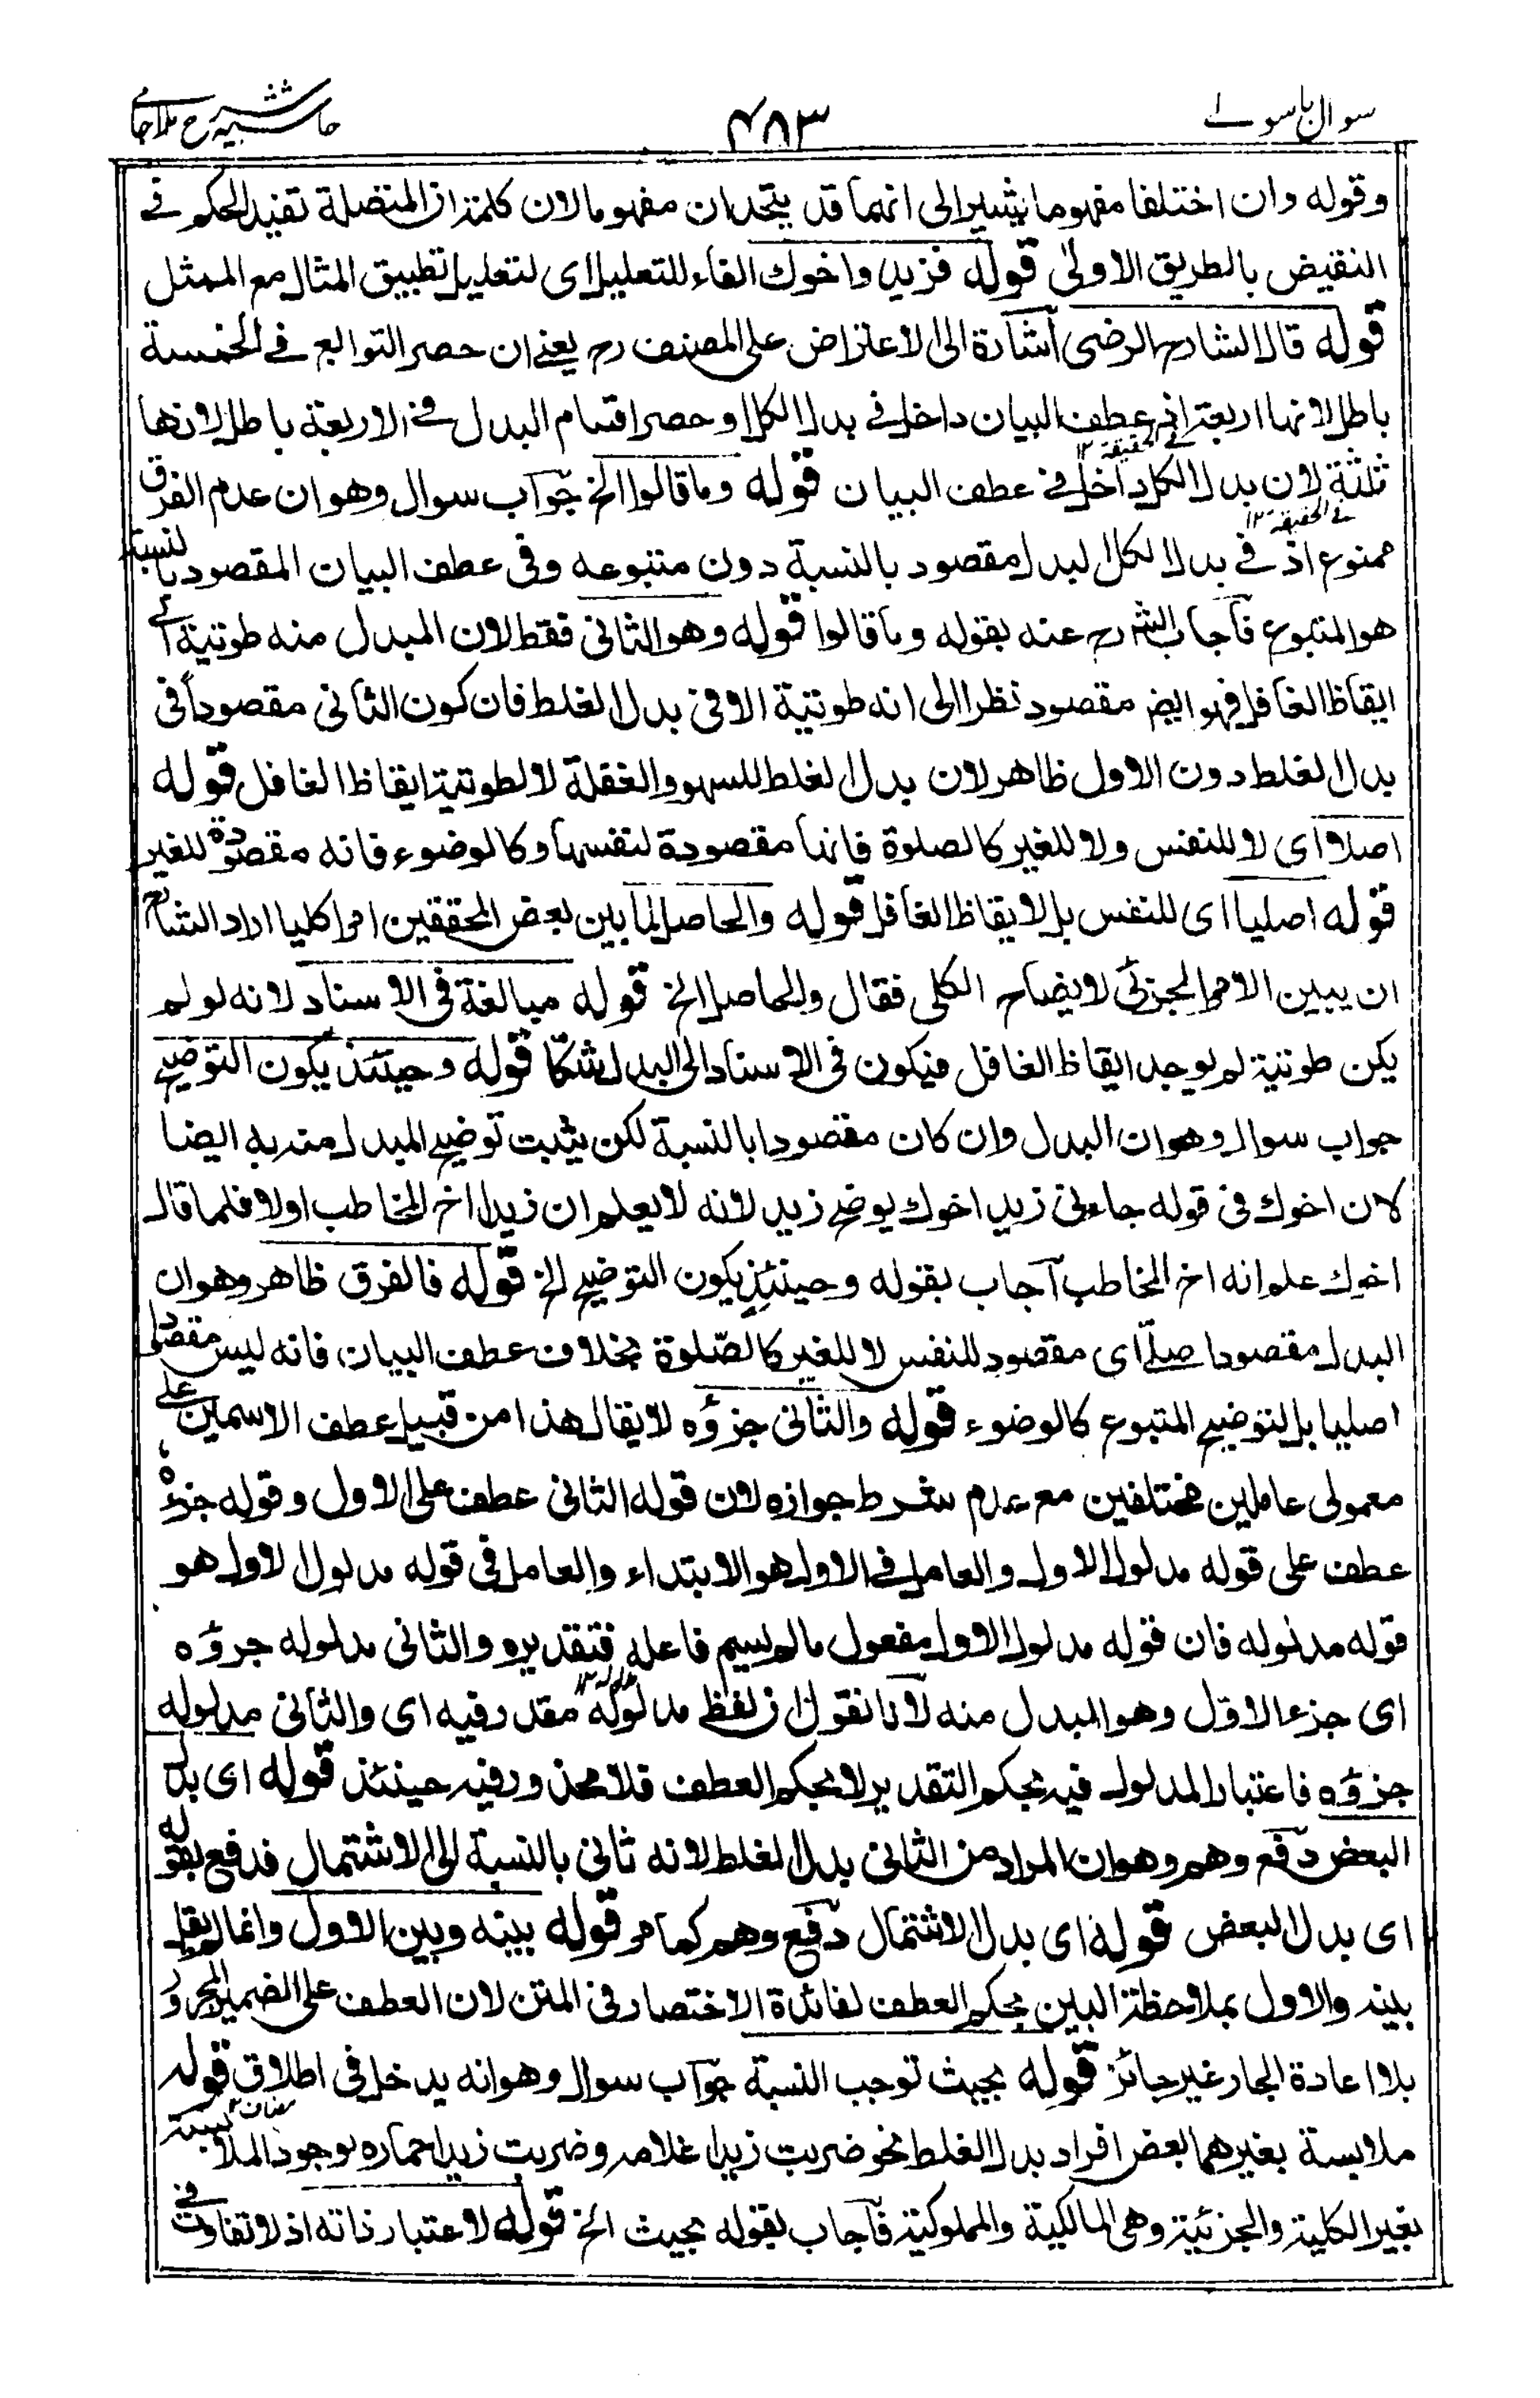 سوال باسولے
۴۸۳
حاشیہ شرح ملا جامی
وقوله وان اختلفا مفهوما يشير الى انهما قد يتحدان مفهوما لان كلمة ان المتصلة تفيد الحكم في
النقيض بالطريق الاولى قوله فزيد واخوك الفاء للتعليل اى لتعليل تطبيق المثال مع الممثل
قوله قال الشارح الرضى اشارة الى الاعتراض على المصنف رح يعنى ان حصر التوابع في الخمسة
باطل لانها اربعة اذ عطف البيان داخل في بدل الكل او حصر اقسام البدل في الاربعة باطل لانها
ثلثة لان بدل الكل داخل في عطف البيان قوله وما قالوا الخ جواب سوال وهو ان عدم الفرق
في الحقيقة ١٢
ممنوع اذ في بدل الكل البدل مقصود بالنسبة دون متبوعه وفى عطف البيان المقصود بالنسبة
في الحقيقة ١٢
هو المتبوع فاجاب الشرح عنه بقوله وما قالوا قوله وهو الثانى فقط لان المبدل منه طوتية اے
ايقاظ الغافل فهو ايضا مقصود نظرا الى انه طوتية الا فى بدل الغلط فان كون الثانى مقصودا فى
بدل الغلط دون الاول ظاهر لان بدل الغلط للسهو والغفلة لا لطوتية ايقاظ الغافل قوله
اصلا اى لا للنفس ولا للغير كالصلوة فانها مقصودة لنفسها وكالوضوء فانه مقصودة للغير
قوله اصليا اى للنفس بل لايقاظ الغافل قوله والحاصل لما بين بعض المحققين امرا كليا اراد الشارح
ان يبين الامر الجزئى لايضاح الكلى فقال والحاصل الخ قوله مبالغة فى الاسناد لانه لو لم
يكن طوتية لم يوجد ايقاظ الغافل فيكون فى الاسناد الى البدل شكا قوله وحينئذ يكون التوضيح
جواب سوال وهو ان البدل وان كان مقصودا بالنسبة لكن يثبت توضيح المبدل منه به ايضا
لان اخوك فى قوله جاءنى زيد اخوك يوضح زيد لانه لا يعلم ان زيدا اخ المخاطب اولا فلما قال
اخوك علم انه اخ المخاطب اجاب بقوله وحينئذ يكون التوضيح الخ قوله فالفرق ظاهر وهو ان
البدل مقصود اصلى اى مقصود للنفس لا للغير كالصلوة بخلاف عطف البيان فانه ليس مقصودا
اصليا بل لتوضيح المتبوع كالوضوء قوله والثانى جزؤه لا يقال هذا من قبيل عطف الاسمين على
معمولى عاملين مختلفين مع عدم شرط جوازه لان قوله الثانى عطف على الاول وقوله جزءه
عطف على قوله مدلول الاول والعامل في الاول هو الابتداء والعامل فى قوله مدلول الاول هو
قوله مدلوله فان قوله مدلول الاول مفعول مالم يسم فاعله فتقديره والثانى مدلوله جزؤه
اى جزء الاول وهو المبدل منه لانا نقول ان لفظ مدلوله مقدر فيه اى والثانى مدلوله
جزؤه فاعتبار المدلول فيه بحكم التقدير لا بحكم العطف فلا محذور فيه حينئذ قوله اى بدل
البعض دفع وهم وهو ان المراد من الثانى بدل الغلط لانه ثانى بالنسبة الى الاشتمال فدفع بقوله
اى بدل البعض قوله اى بدل الاشتمال دفع وهم كما مر قوله بينه وبين الاول وانما لم يقل
بينه والاول بملاحظة البين بحكم العطف لفائدة الاختصار فى المتن لان العطف على الضمير المجرور
بلا اعادة الجار غير جائز قوله بحيث توجب النسبة جواب سوال وهو انه يدخل فى اطلاق قوله
ملابسة بغيرهما بعض افراد بدل الغلط نحو ضربت زيدا غلامه وضربت زيدا حماره لوجود الملابسة
بغير الكلية والجزئية وهى المالكية والمملوكية فاجاب بقوله بحيث الخ قوله لاعتبار ذاته اذ لا تفاوت في